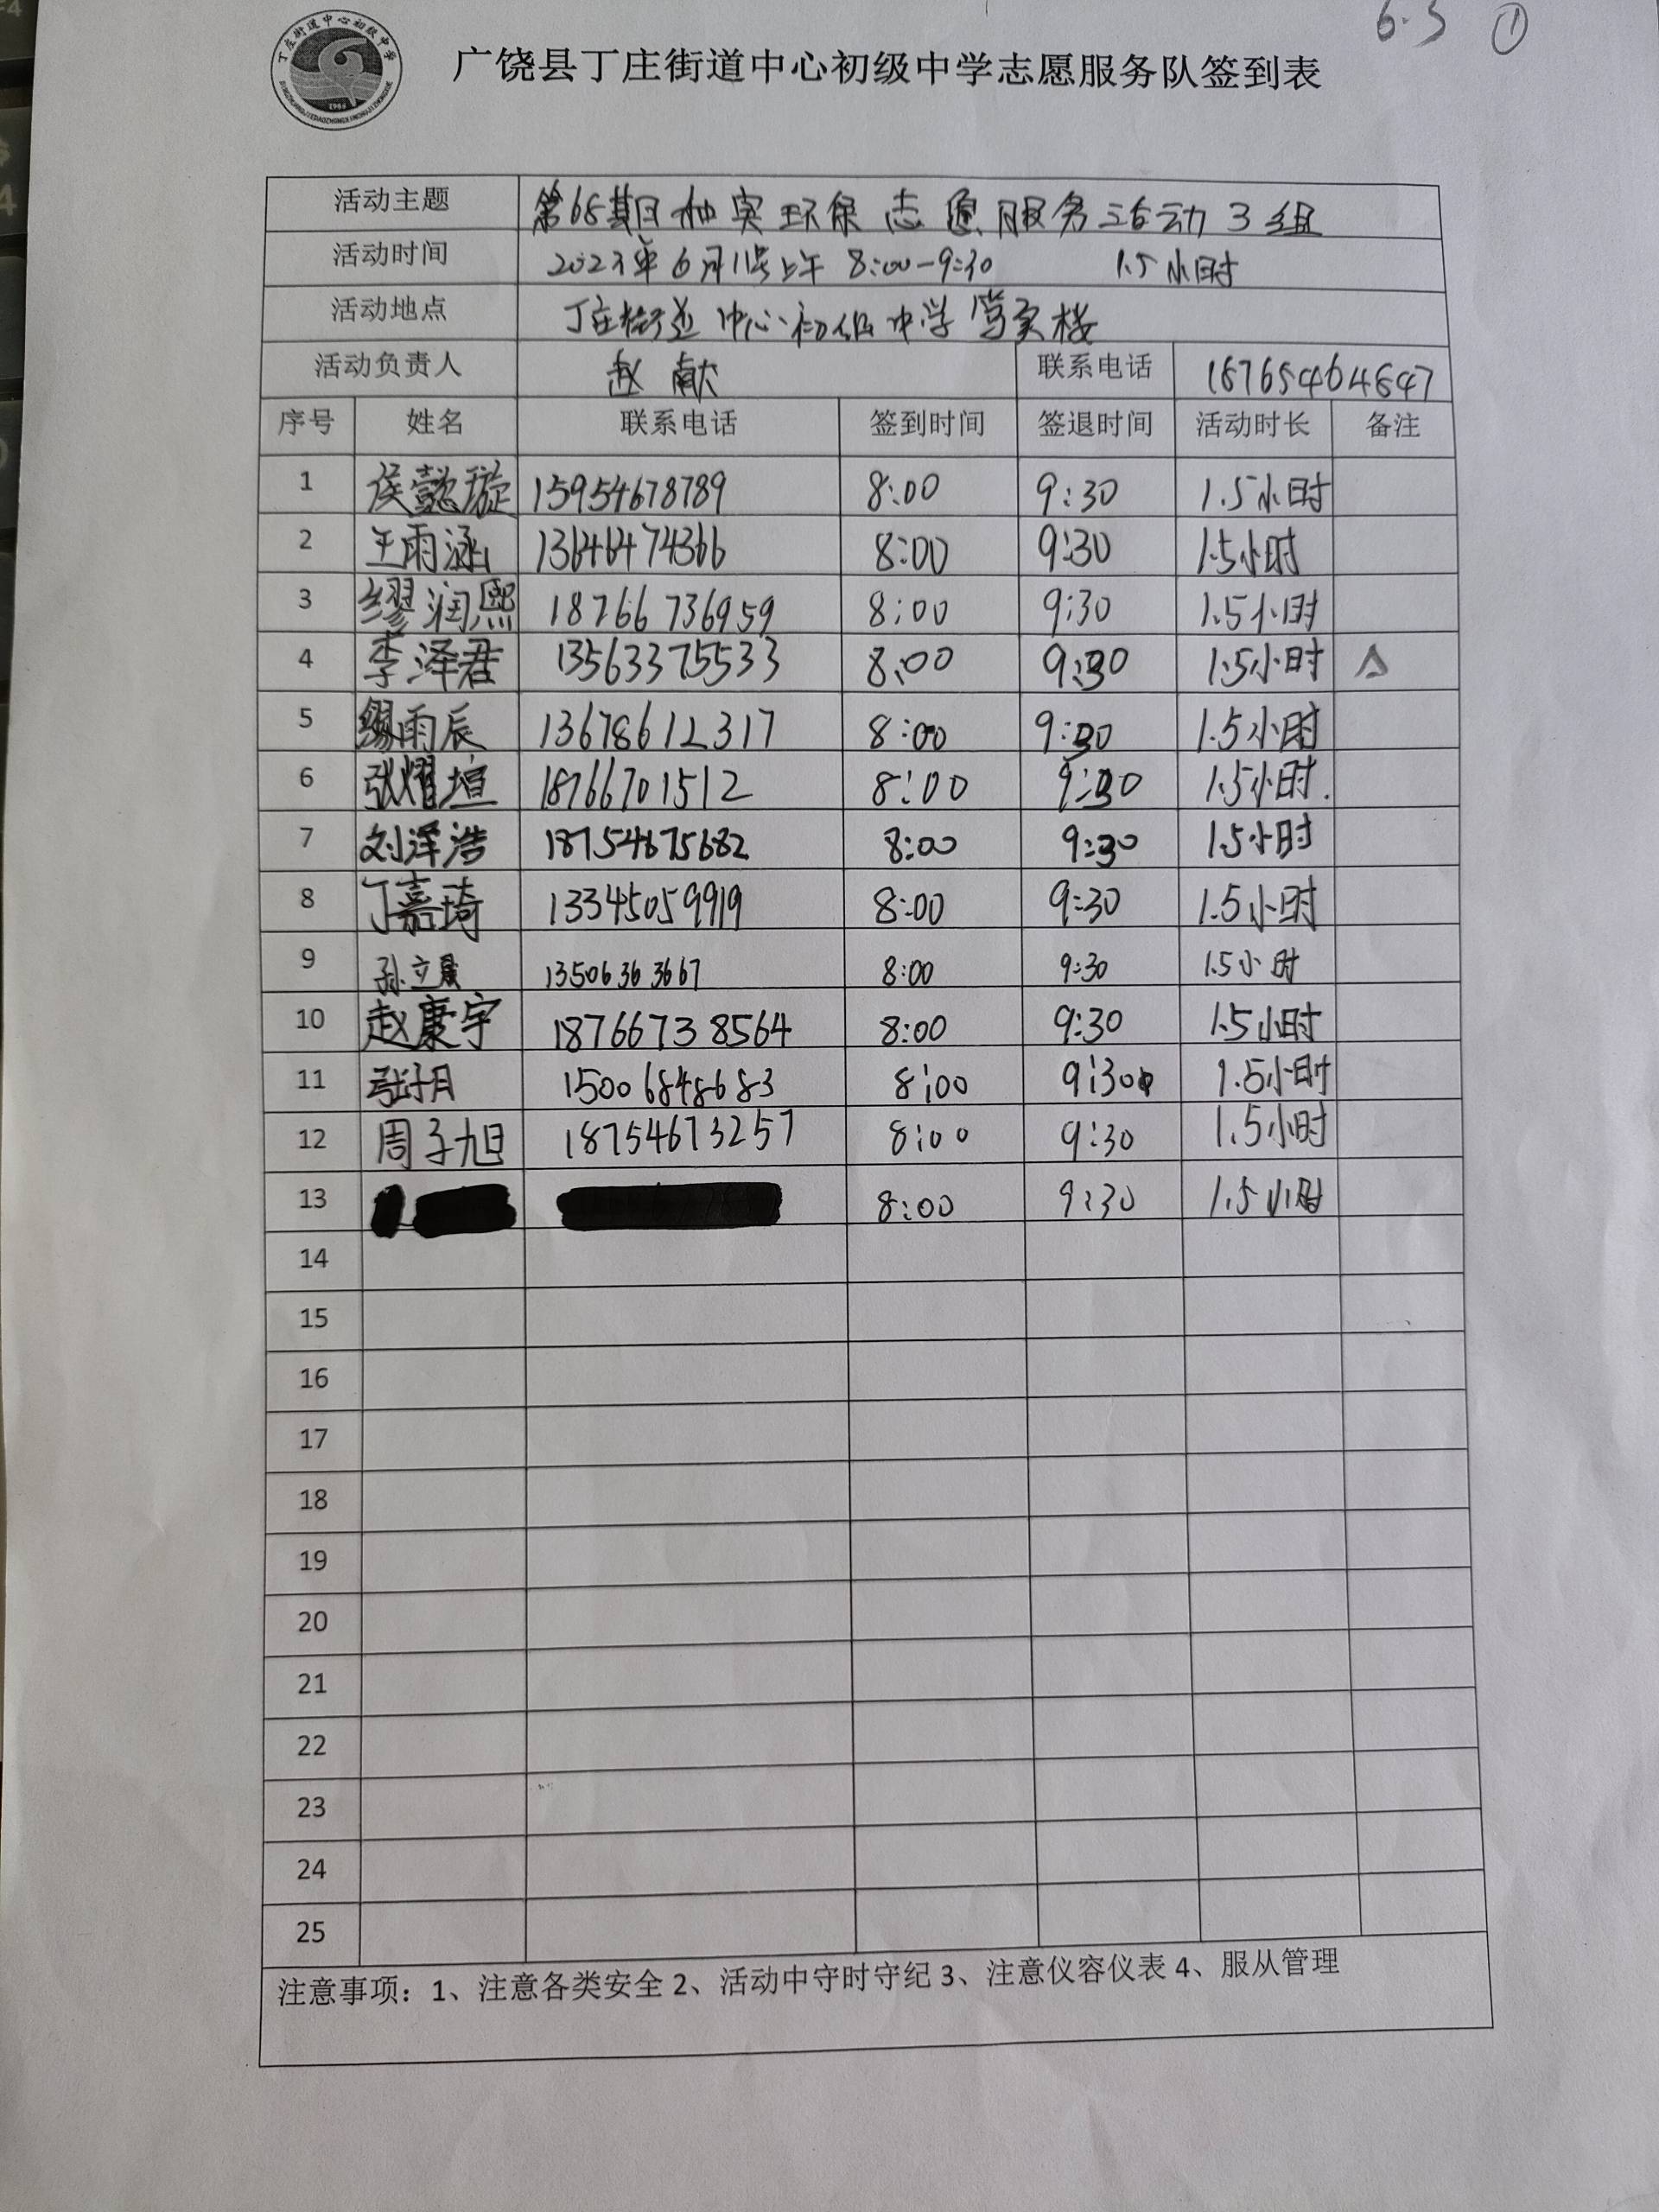 6.3 ①
丁庄街道中心初级中学
1984
广饶县丁庄街道中心初级中学志愿服务队签到表
活动主题 第68期 实环保志愿服务活动3组
活动时间 2023年6月11号上午 8:00-9:30 1.5小时
活动地点 丁庄街道中心初级中学笃实楼
活动负责人 赵献 联系电话 18765464647
序号 姓名 联系电话 签到时间 签退时间 活动时长 备注
1 侯懿璇 15954678789 8:00 9:30 1.5小时
2 王雨涵 13646474366 8:00 9:30 1.5小时
3 缪润熙 18766736959 8:00 9:30 1.5小时
4 李泽君 13563375533 8:00 9:30 1.5小时
5 雨辰 13678612317 8:00 9:30 1.5小时
6 张耀埴 18766701512 8:00 9:30 1.5小时.
7 刘泽浩 18754675682 8:00 9:30 1.5小时
8 丁嘉琦 13345059919 8:00 9:30 1.5小时
9 孙立晨 13506363667 8:00 9:30 1.5小时
10 赵康宇 18766738564 8:00 9:30 1.5小时
11 15006848683 8:00 9:30 1.5小时
12 周子旭 18754673257 8:00 9:30 1.5小时
13 8:00 9:30 1.5小时
14
15
16
17
18
19
20
21
22
23
24
25
注意事项：1、注意各类安全 2、活动中守时守纪 3、注意仪容仪表 4、服从管理